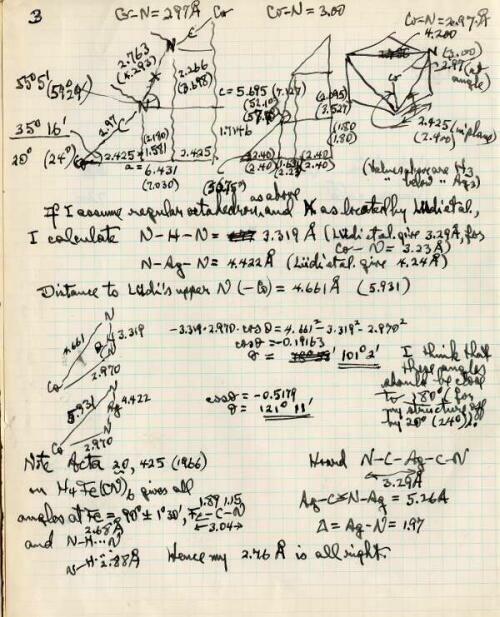 3
Co-N = 2.97Å
Co
Co-N = 3.00
Co-N = 2.97Å
4.200
N
N (3.00)
2.97 (at
angle)
2.763
(4.293)
2.266
(3.698)
55°5'
c = 5.695 (7.127)
(52.10)
(2.095)
(3.527)
35° 16'
2.97
1.7146
(1.80)
(1.80)
2.425 (in plane)
(2.400)
20° (24°)
Co
2.425
1.581
2.425
(2.40)
(2.40)
(2.40)
(2.40)
a = 6.431
(7.030)
(30.75°)
(Values above are H3
" below " Ag3)
as above
If I assume regular octahedron, and N as located by Lüdi et al.,
I calculate N-H-N = 3.319Å (Lüdi et al. give 3.29Å, for
Co-N = 3.23Å)
N-Ag-N = 4.422Å (Lüdi et al. give 4.24Å)
Distance to Lüdi's upper N (-Co) = 4.661Å (5.931)
N
4.661
3.319
θ
N
Co
2.970
-3.319·2.970·cosθ = 4.661² - 3.319² - 2.970²
cosθ = -0.19163
θ = 101° 2'
I think that
these angles
should be close
to 180°, for
my structure off
by 20° (24°).
N
5.931
Ag 4.422
N
Co
2.970
cosθ = -0.5179
θ = 121° 11'
Note Acta 20, 425 (1966)
on H4Fe(CN)6 gives all
1.89 1.15
angles at Fe = 90° ± 1°30', Fe-C-N
3.04
2.68Å
and N-H···N
N-H···2.88Å
Hence my 2.76Å is all right.
Hoard N-C-Ag-C-N
3.29Å
Ag-C≡N-Ag = 5.26Å
Δ = Ag-N = 1.97